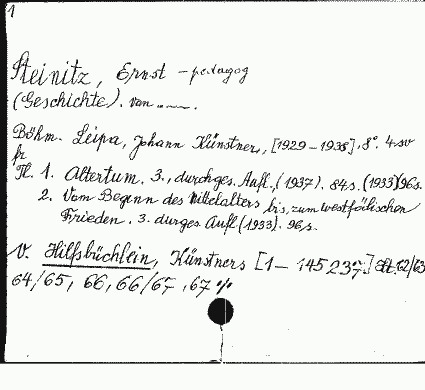 1
Steinitz, Ernst - pedagog
(Geschichte). von ......
Böhm. Leipa, Johann Künstner, [1929-1938]. 8°. 4. sv
fr
Tl. 1. Altertum. 3., durchges. Aufl. (1937). 84 s. (1933) 96 s.
2. Vom Beginn des Mittelalters bis zum westfälischen
Frieden. 3. durges. Aufl (1933). 96 s.
V. Hilfsbüchlein, Künstners [1- 145237.] 62/63
64/65, 66, 66/67, 67